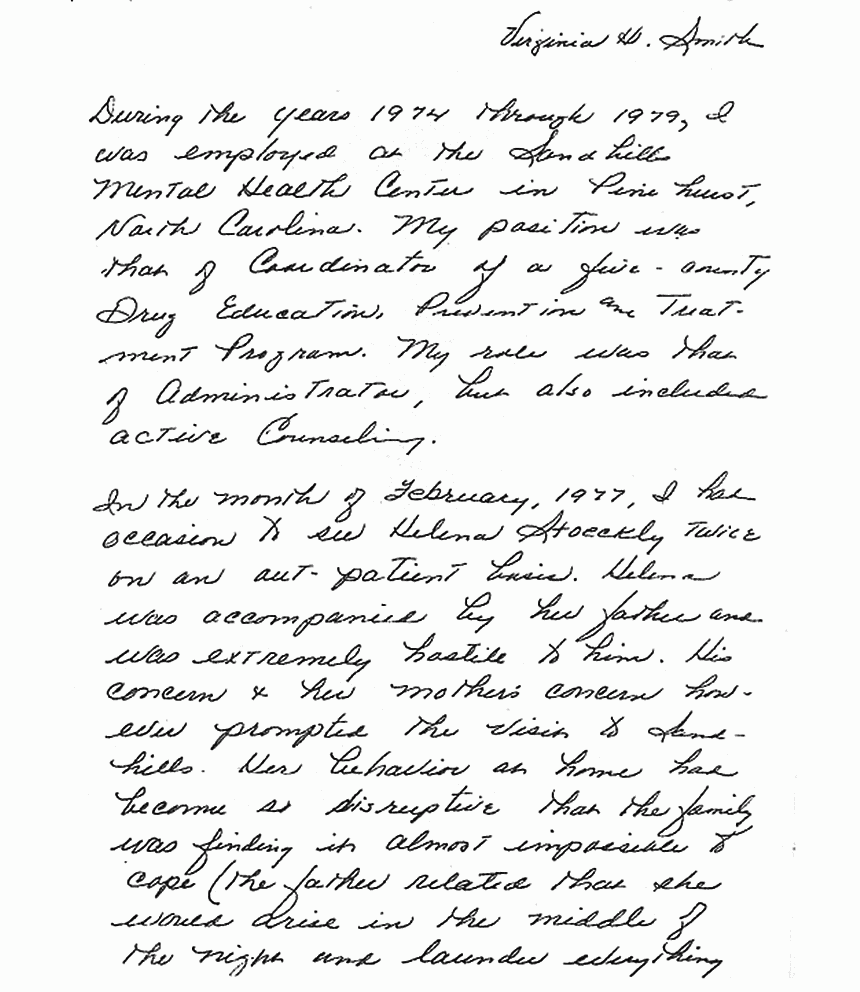 Virginia H. Smith
During the years 1974 through 1979, I
was employed at the Sandhills
Mental Health Center in Pinehurst,
North Carolina. My position was
that of Coordinator of a five-county
Drug Education, Prevention and Treat-
ment Program. My role was that
of Administrator, but also included
active Counseling.
In the month of February, 1977, I had
occasion to see Helena Stoeckly twice
on an out-patient basis. Helena
was accompanied by her father and
was extremely hostile to him. His
concern & her mother's concern how-
ever prompted the visit to Sand-
hills. Her behavior at home had
become so disruptive that the family
was finding it almost impossible to
cope (the father related that she
would arise in the middle of
the night and launder everything